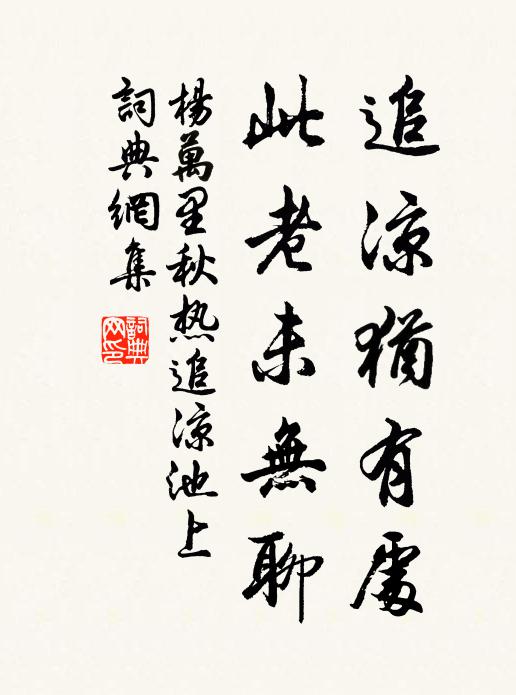 追涼猶有處
此老未無聊
楊萬里秋热追涼池上
詞典網集
詞典网印